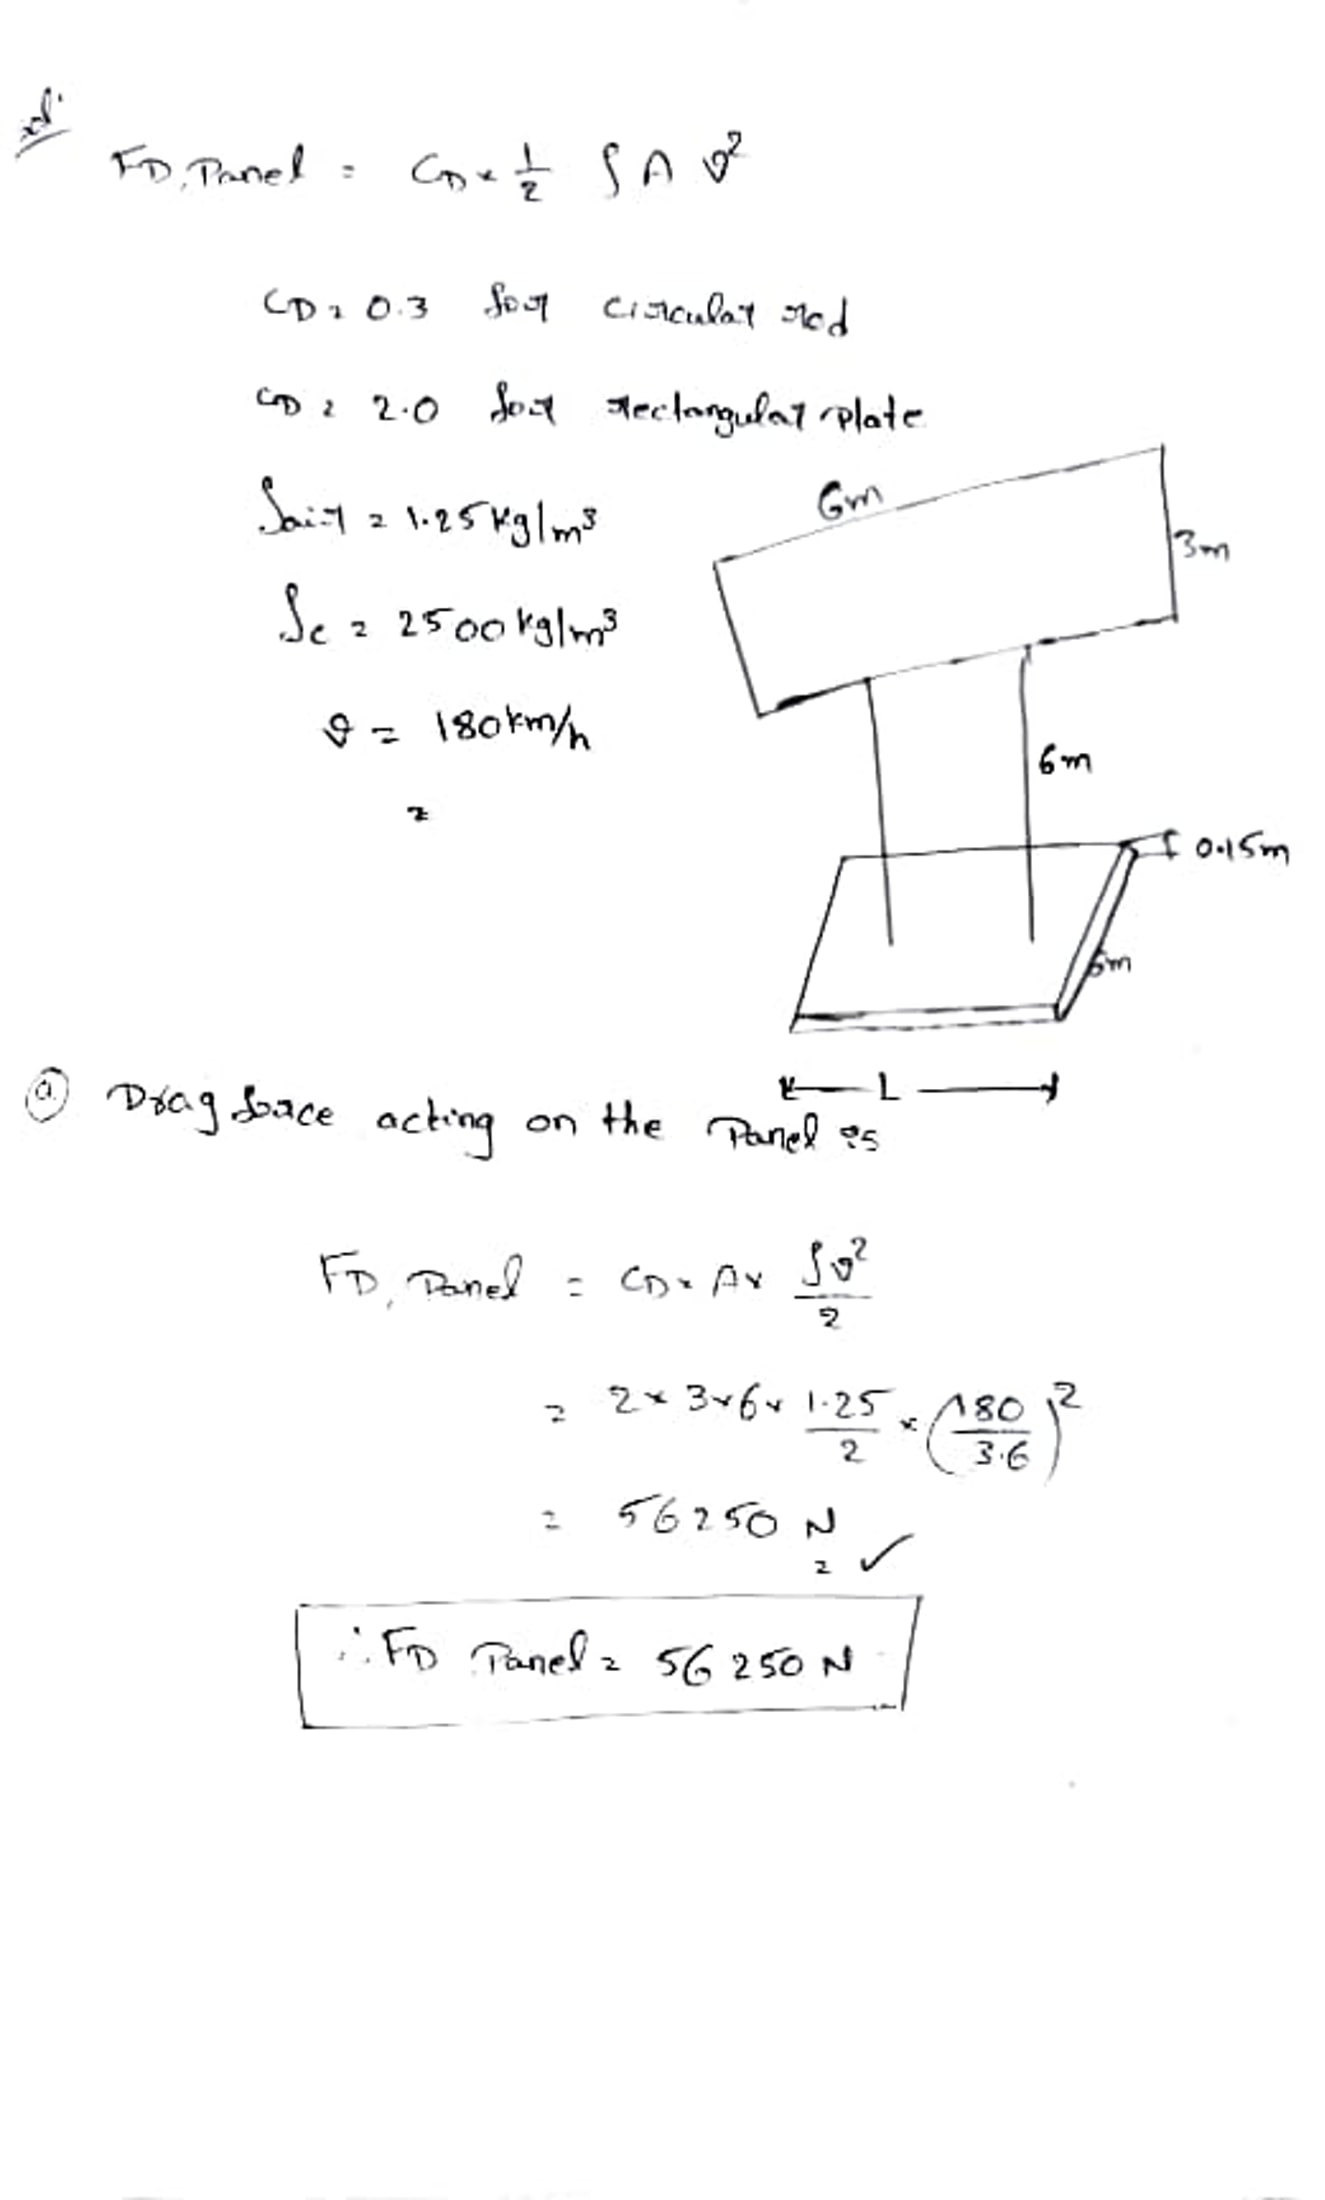 Sol.
FD, Panel = CD × 1/2 ρ A v²
CD = 0.3 for circular rod
CD = 2.0 for rectangular plate
ρair = 1.25 kg/m³
6m
3m
ρc = 2500 kg/m³
v = 180 km/h
6m
=
0.15m
6m
L
ⓐ Drag force acting on the Panel is
FD, Panel = CD × A × ρv²/2
= 2 × 3 × 6 × 1.25/2 × (180/3.6)²
= 56250 N
= ✓
∴ FD Panel = 56250 N